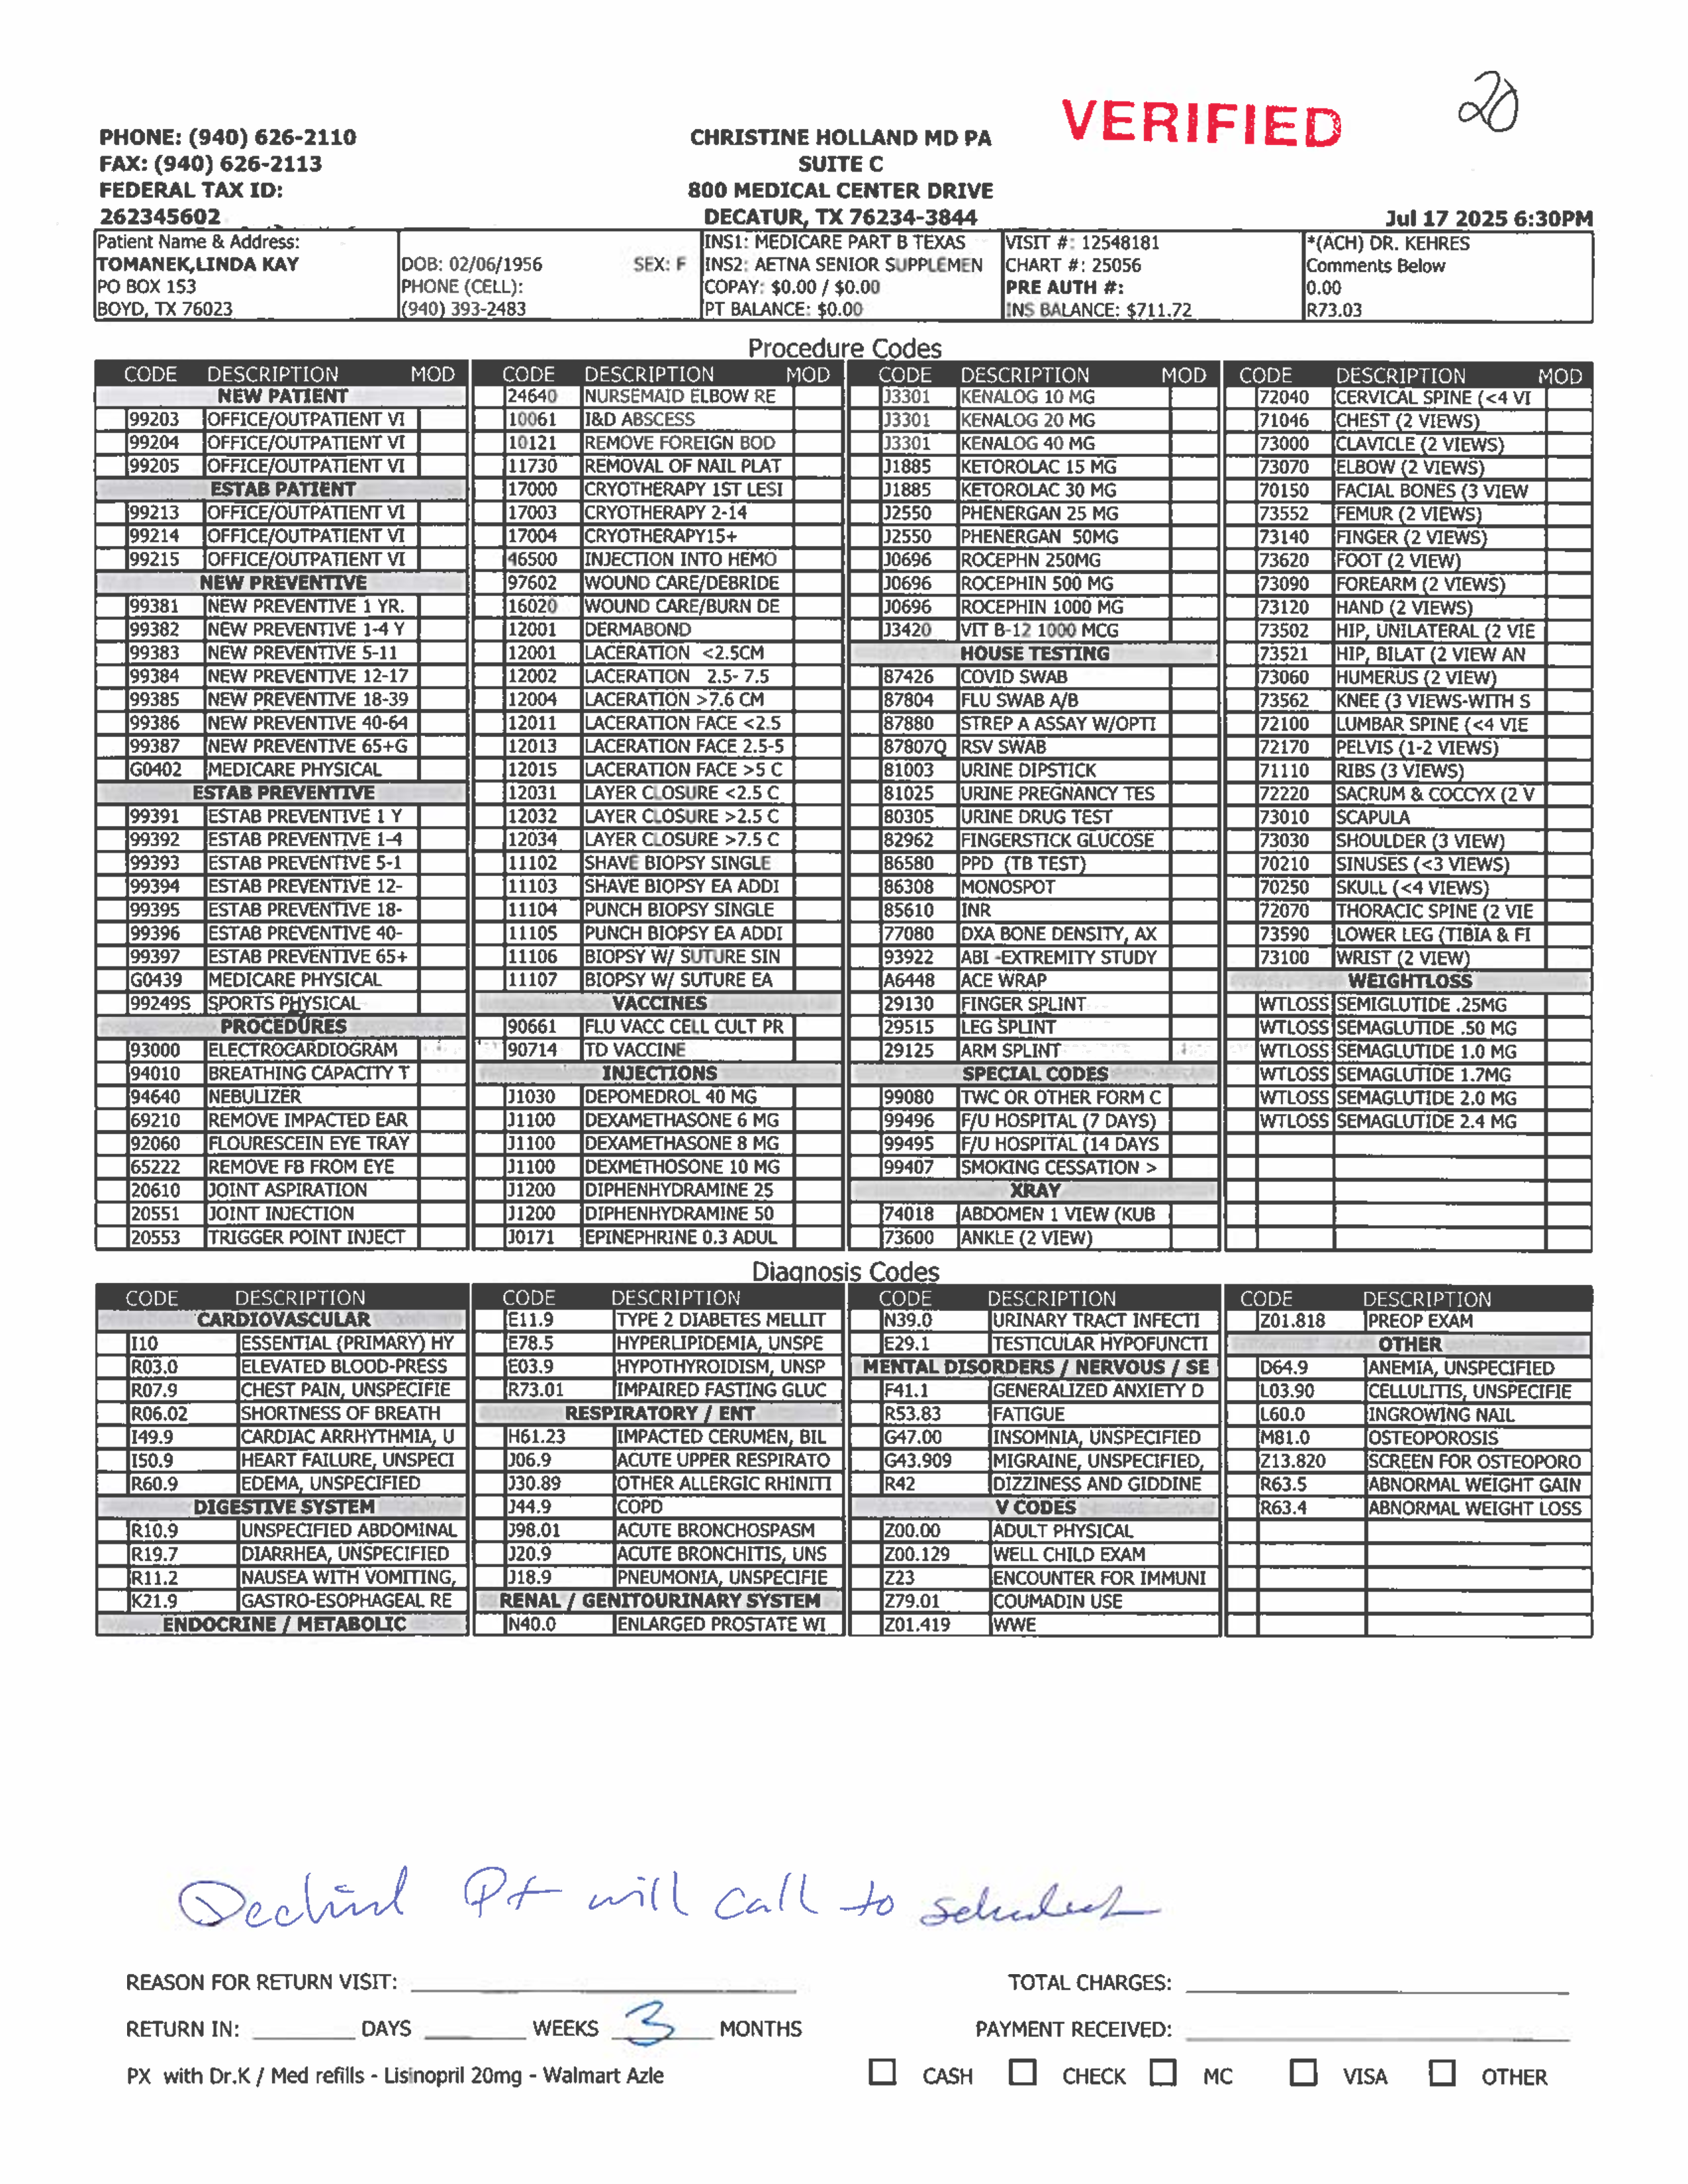 VERIFIED
20
PHONE: (940) 626-2110
FAX: (940) 626-2113
FEDERAL TAX ID:
262345602
CHRISTINE HOLLAND MD PA
SUITE C
800 MEDICAL CENTER DRIVE
DECATUR, TX 76234-3844
Jul 17 2025 6:30PM
Patient Name & Address:
TOMANEK,LINDA KAY
PO BOX 153
BOYD, TX 76023
DOB: 02/06/1956 SEX: F
PHONE (CELL):
(940) 393-2483
INS1: MEDICARE PART B TEXAS
INS2: AETNA SENIOR SUPPLEMEN
COPAY: $0.00 / $0.00
PT BALANCE: $0.00
VISIT #: 12548181
CHART #: 25056
PRE AUTH #:
INS BALANCE: $711.72
*(ACH) DR. KEHRES
Comments Below
0.00
R73.03
Procedure Codes
CODE DESCRIPTION MOD
NEW PATIENT
99203 OFFICE/OUTPATIENT VI
99204 OFFICE/OUTPATIENT VI
99205 OFFICE/OUTPATIENT VI
ESTAB PATIENT
99213 OFFICE/OUTPATIENT VI
99214 OFFICE/OUTPATIENT VI
99215 OFFICE/OUTPATIENT VI
NEW PREVENTIVE
99381 NEW PREVENTIVE 1 YR.
99382 NEW PREVENTIVE 1-4 Y
99383 NEW PREVENTIVE 5-11
99384 NEW PREVENTIVE 12-17
99385 NEW PREVENTIVE 18-39
99386 NEW PREVENTIVE 40-64
99387 NEW PREVENTIVE 65+G
G0402 MEDICARE PHYSICAL
ESTAB PREVENTIVE
99391 ESTAB PREVENTIVE 1 Y
99392 ESTAB PREVENTIVE 1-4
99393 ESTAB PREVENTIVE 5-1
99394 ESTAB PREVENTIVE 12-
99395 ESTAB PREVENTIVE 18-
99396 ESTAB PREVENTIVE 40-
99397 ESTAB PREVENTIVE 65+
G0439 MEDICARE PHYSICAL
99249S SPORTS PHYSICAL
PROCEDURES
93000 ELECTROCARDIOGRAM
94010 BREATHING CAPACITY T
94640 NEBULIZER
69210 REMOVE IMPACTED EAR
92060 FLOURESCEIN EYE TRAY
65222 REMOVE FB FROM EYE
20610 JOINT ASPIRATION
20551 JOINT INJECTION
20553 TRIGGER POINT INJECT
CODE DESCRIPTION MOD
24640 NURSEMAID ELBOW RE
10061 I&D ABSCESS
10121 REMOVE FOREIGN BOD
11730 REMOVAL OF NAIL PLAT
17000 CRYOTHERAPY 1ST LESI
17003 CRYOTHERAPY 2-14
17004 CRYOTHERAPY15+
46500 INJECTION INTO HEMO
97602 WOUND CARE/DEBRIDE
16020 WOUND CARE/BURN DE
12001 DERMABOND
12001 LACERATION <2.5CM
12002 LACERATION 2.5- 7.5
12004 LACERATION >7.6 CM
12011 LACERATION FACE <2.5
12013 LACERATION FACE 2.5-5
12015 LACERATION FACE >5 C
12031 LAYER CLOSURE <2.5 C
12032 LAYER CLOSURE >2.5 C
12034 LAYER CLOSURE >7.5 C
11102 SHAVE BIOPSY SINGLE
11103 SHAVE BIOPSY EA ADDI
11104 PUNCH BIOPSY SINGLE
11105 PUNCH BIOPSY EA ADDI
11106 BIOPSY W/ SUTURE SIN
11107 BIOPSY W/ SUTURE EA
VACCINES
90661 FLU VACC CELL CULT PR
90714 TD VACCINE
INJECTIONS
J1030 DEPOMEDROL 40 MG
J1100 DEXAMETHASONE 6 MG
J1100 DEXAMETHASONE 8 MG
J1100 DEXMETHOSONE 10 MG
J1200 DIPHENHYDRAMINE 25
J1200 DIPHENHYDRAMINE 50
J0171 EPINEPHRINE 0.3 ADUL
CODE DESCRIPTION MOD
J3301 KENALOG 10 MG
J3301 KENALOG 20 MG
J3301 KENALOG 40 MG
J1885 KETOROLAC 15 MG
J1885 KETOROLAC 30 MG
J2550 PHENERGAN 25 MG
J2550 PHENERGAN 50MG
J0696 ROCEPHN 250MG
J0696 ROCEPHIN 500 MG
J0696 ROCEPHIN 1000 MG
J3420 VIT B-12 1000 MCG
HOUSE TESTING
87426 COVID SWAB
87804 FLU SWAB A/B
87880 STREP A ASSAY W/OPTI
87807Q RSV SWAB
81003 URINE DIPSTICK
81025 URINE PREGNANCY TES
80305 URINE DRUG TEST
82962 FINGERSTICK GLUCOSE
86580 PPD (TB TEST)
86308 MONOSPOT
85610 INR
77080 DXA BONE DENSITY, AX
93922 ABI -EXTREMITY STUDY
A6448 ACE WRAP
29130 FINGER SPLINT
29515 LEG SPLINT
29125 ARM SPLINT
SPECIAL CODES
99080 TWC OR OTHER FORM C
99496 F/U HOSPITAL (7 DAYS)
99495 F/U HOSPITAL (14 DAYS
99407 SMOKING CESSATION >
XRAY
74018 ABDOMEN 1 VIEW (KUB
73600 ANKLE (2 VIEW)
CODE DESCRIPTION MOD
72040 CERVICAL SPINE (<4 VI
71046 CHEST (2 VIEWS)
73000 CLAVICLE (2 VIEWS)
73070 ELBOW (2 VIEWS)
70150 FACIAL BONES (3 VIEW
73552 FEMUR (2 VIEWS)
73140 FINGER (2 VIEWS)
73620 FOOT (2 VIEW)
73090 FOREARM (2 VIEWS)
73120 HAND (2 VIEWS)
73502 HIP, UNILATERAL (2 VIE
73521 HIP, BILAT (2 VIEW AN
73060 HUMERUS (2 VIEW)
73562 KNEE (3 VIEWS-WITH S
72100 LUMBAR SPINE (<4 VIE
72170 PELVIS (1-2 VIEWS)
71110 RIBS (3 VIEWS)
72220 SACRUM & COCCYX (2 V
73010 SCAPULA
73030 SHOULDER (3 VIEW)
70210 SINUSES (<3 VIEWS)
70250 SKULL (<4 VIEWS)
72070 THORACIC SPINE (2 VIE
73590 LOWER LEG (TIBIA & FI
73100 WRIST (2 VIEW)
WEIGHTLOSS
WTLOSS SEMIGLUTIDE .25MG
WTLOSS SEMAGLUTIDE .50 MG
WTLOSS SEMAGLUTIDE 1.0 MG
WTLOSS SEMAGLUTIDE 1.7MG
WTLOSS SEMAGLUTIDE 2.0 MG
WTLOSS SEMAGLUTIDE 2.4 MG
Diagnosis Codes
CODE DESCRIPTION
CARDIOVASCULAR
I10 ESSENTIAL (PRIMARY) HY
R03.0 ELEVATED BLOOD-PRESS
R07.9 CHEST PAIN, UNSPECIFIE
R06.02 SHORTNESS OF BREATH
I49.9 CARDIAC ARRHYTHMIA, U
I50.9 HEART FAILURE, UNSPECI
R60.9 EDEMA, UNSPECIFIED
DIGESTIVE SYSTEM
R10.9 UNSPECIFIED ABDOMINAL
R19.7 DIARRHEA, UNSPECIFIED
R11.2 NAUSEA WITH VOMITING,
K21.9 GASTRO-ESOPHAGEAL RE
ENDOCRINE / METABOLIC
CODE DESCRIPTION
E11.9 TYPE 2 DIABETES MELLIT
E78.5 HYPERLIPIDEMIA, UNSPE
E03.9 HYPOTHYROIDISM, UNSP
R73.01 IMPAIRED FASTING GLUC
RESPIRATORY / ENT
H61.23 IMPACTED CERUMEN, BIL
J06.9 ACUTE UPPER RESPIRATO
J30.89 OTHER ALLERGIC RHINITI
J44.9 COPD
J98.01 ACUTE BRONCHOSPASM
J20.9 ACUTE BRONCHITIS, UNS
J18.9 PNEUMONIA, UNSPECIFIE
RENAL / GENITOURINARY SYSTEM
N40.0 ENLARGED PROSTATE WI
CODE DESCRIPTION
N39.0 URINARY TRACT INFECTI
E29.1 TESTICULAR HYPOFUNCTI
MENTAL DISORDERS / NERVOUS / SE
F41.1 GENERALIZED ANXIETY D
R53.83 FATIGUE
G47.00 INSOMNIA, UNSPECIFIED
G43.909 MIGRAINE, UNSPECIFIED,
R42 DIZZINESS AND GIDDINE
V CODES
Z00.00 ADULT PHYSICAL
Z00.129 WELL CHILD EXAM
Z23 ENCOUNTER FOR IMMUNI
Z79.01 COUMADIN USE
Z01.419 WWE
CODE DESCRIPTION
Z01.818 PREOP EXAM
OTHER
D64.9 ANEMIA, UNSPECIFIED
L03.90 CELLULITIS, UNSPECIFIE
L60.0 INGROWING NAIL
M81.0 OSTEOPOROSIS
Z13.820 SCREEN FOR OSTEOPORO
R63.5 ABNORMAL WEIGHT GAIN
R63.4 ABNORMAL WEIGHT LOSS
Pt will call to
REASON FOR RETURN VISIT:
TOTAL CHARGES:
RETURN IN: DAYS WEEKS 3 MONTHS
PAYMENT RECEIVED:
PX with Dr.K / Med refills - Lisinopril 20mg - Walmart Azle
CASH CHECK MC VISA OTHER